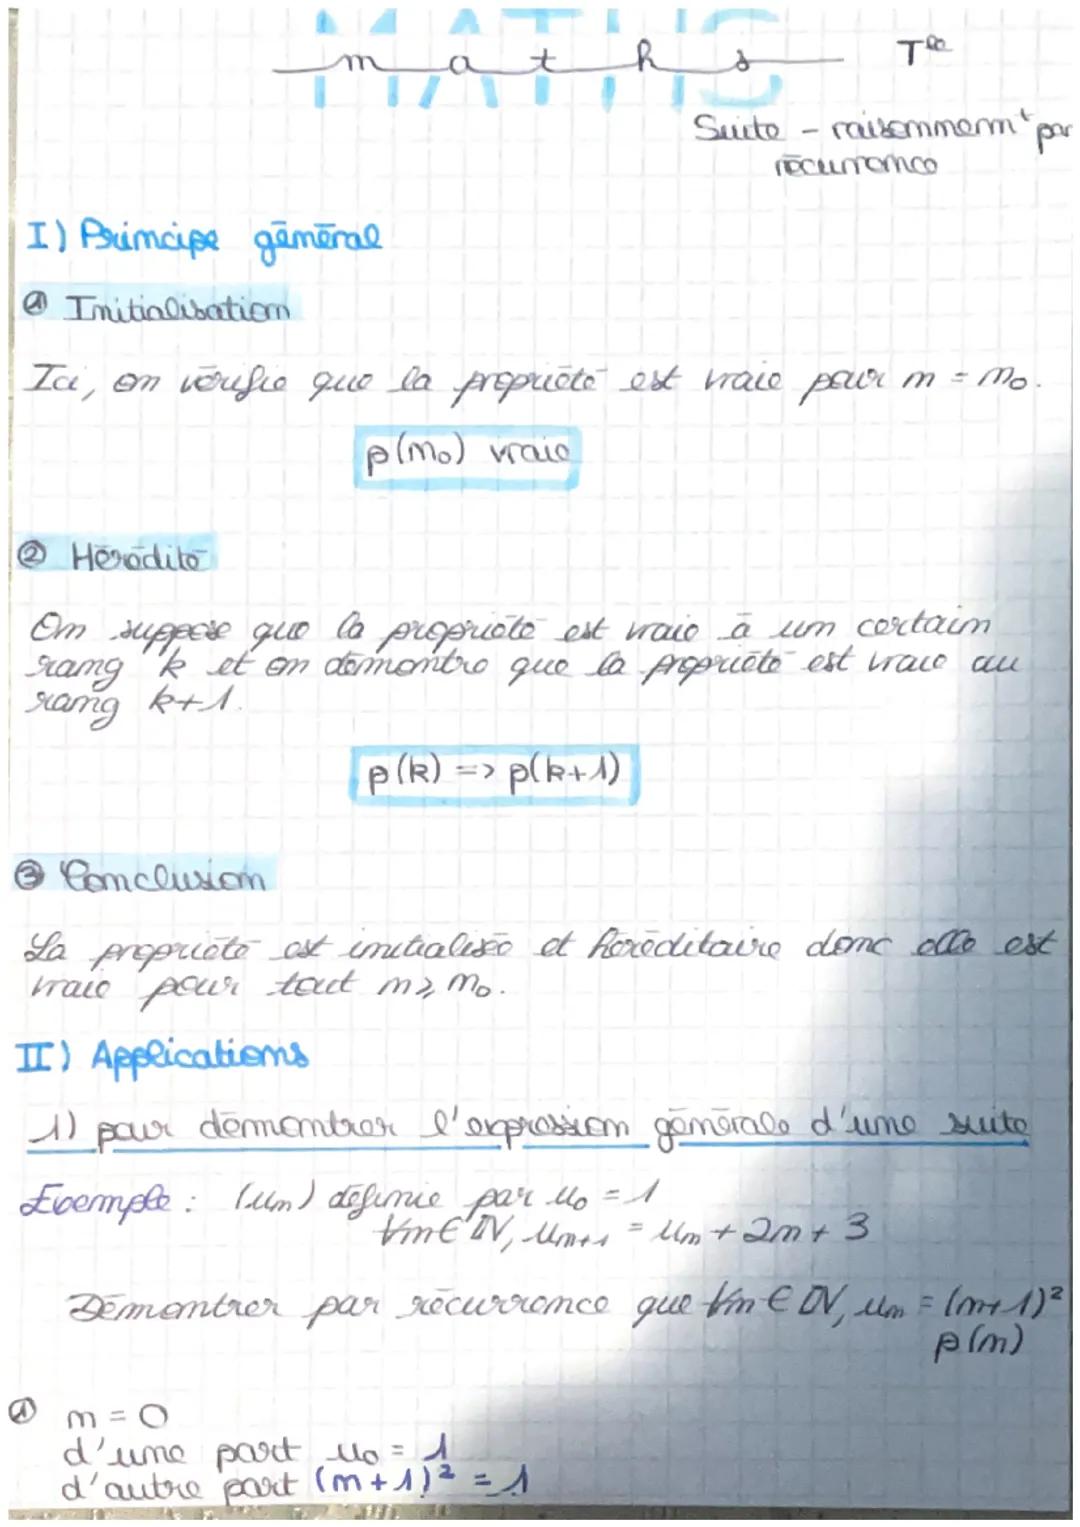 MATHS
maths Tle
Suite - raisonnemt par
récurrence
I) Principe général
① Initialisation
Ici, on vérifie que la propriété est vraie pour n = n₀.
p(n₀) vraie
② Hérédité
On suppose que la propriété est vraie à un certain
rang k et on démontre que la propriété est vraie au
rang k+1.
p(k) => p(k+1)
③ Conclusion
La propriété est initialisée et héréditaire donc elle est
vraie pour tout n ≥ n₀.
II) Applications
1) pour démontrer l'expression générale d'une suite
Exemple : (un) définie par u₀ = 1
∀n ∈ ℕ, un+1 = un + 2n + 3
Démontrer par récurrence que ∀n ∈ ℕ, un = (n+1)²
p(n)
① n = 0
d'une part u₀ = 1
d'autre part (n+1)² = 1